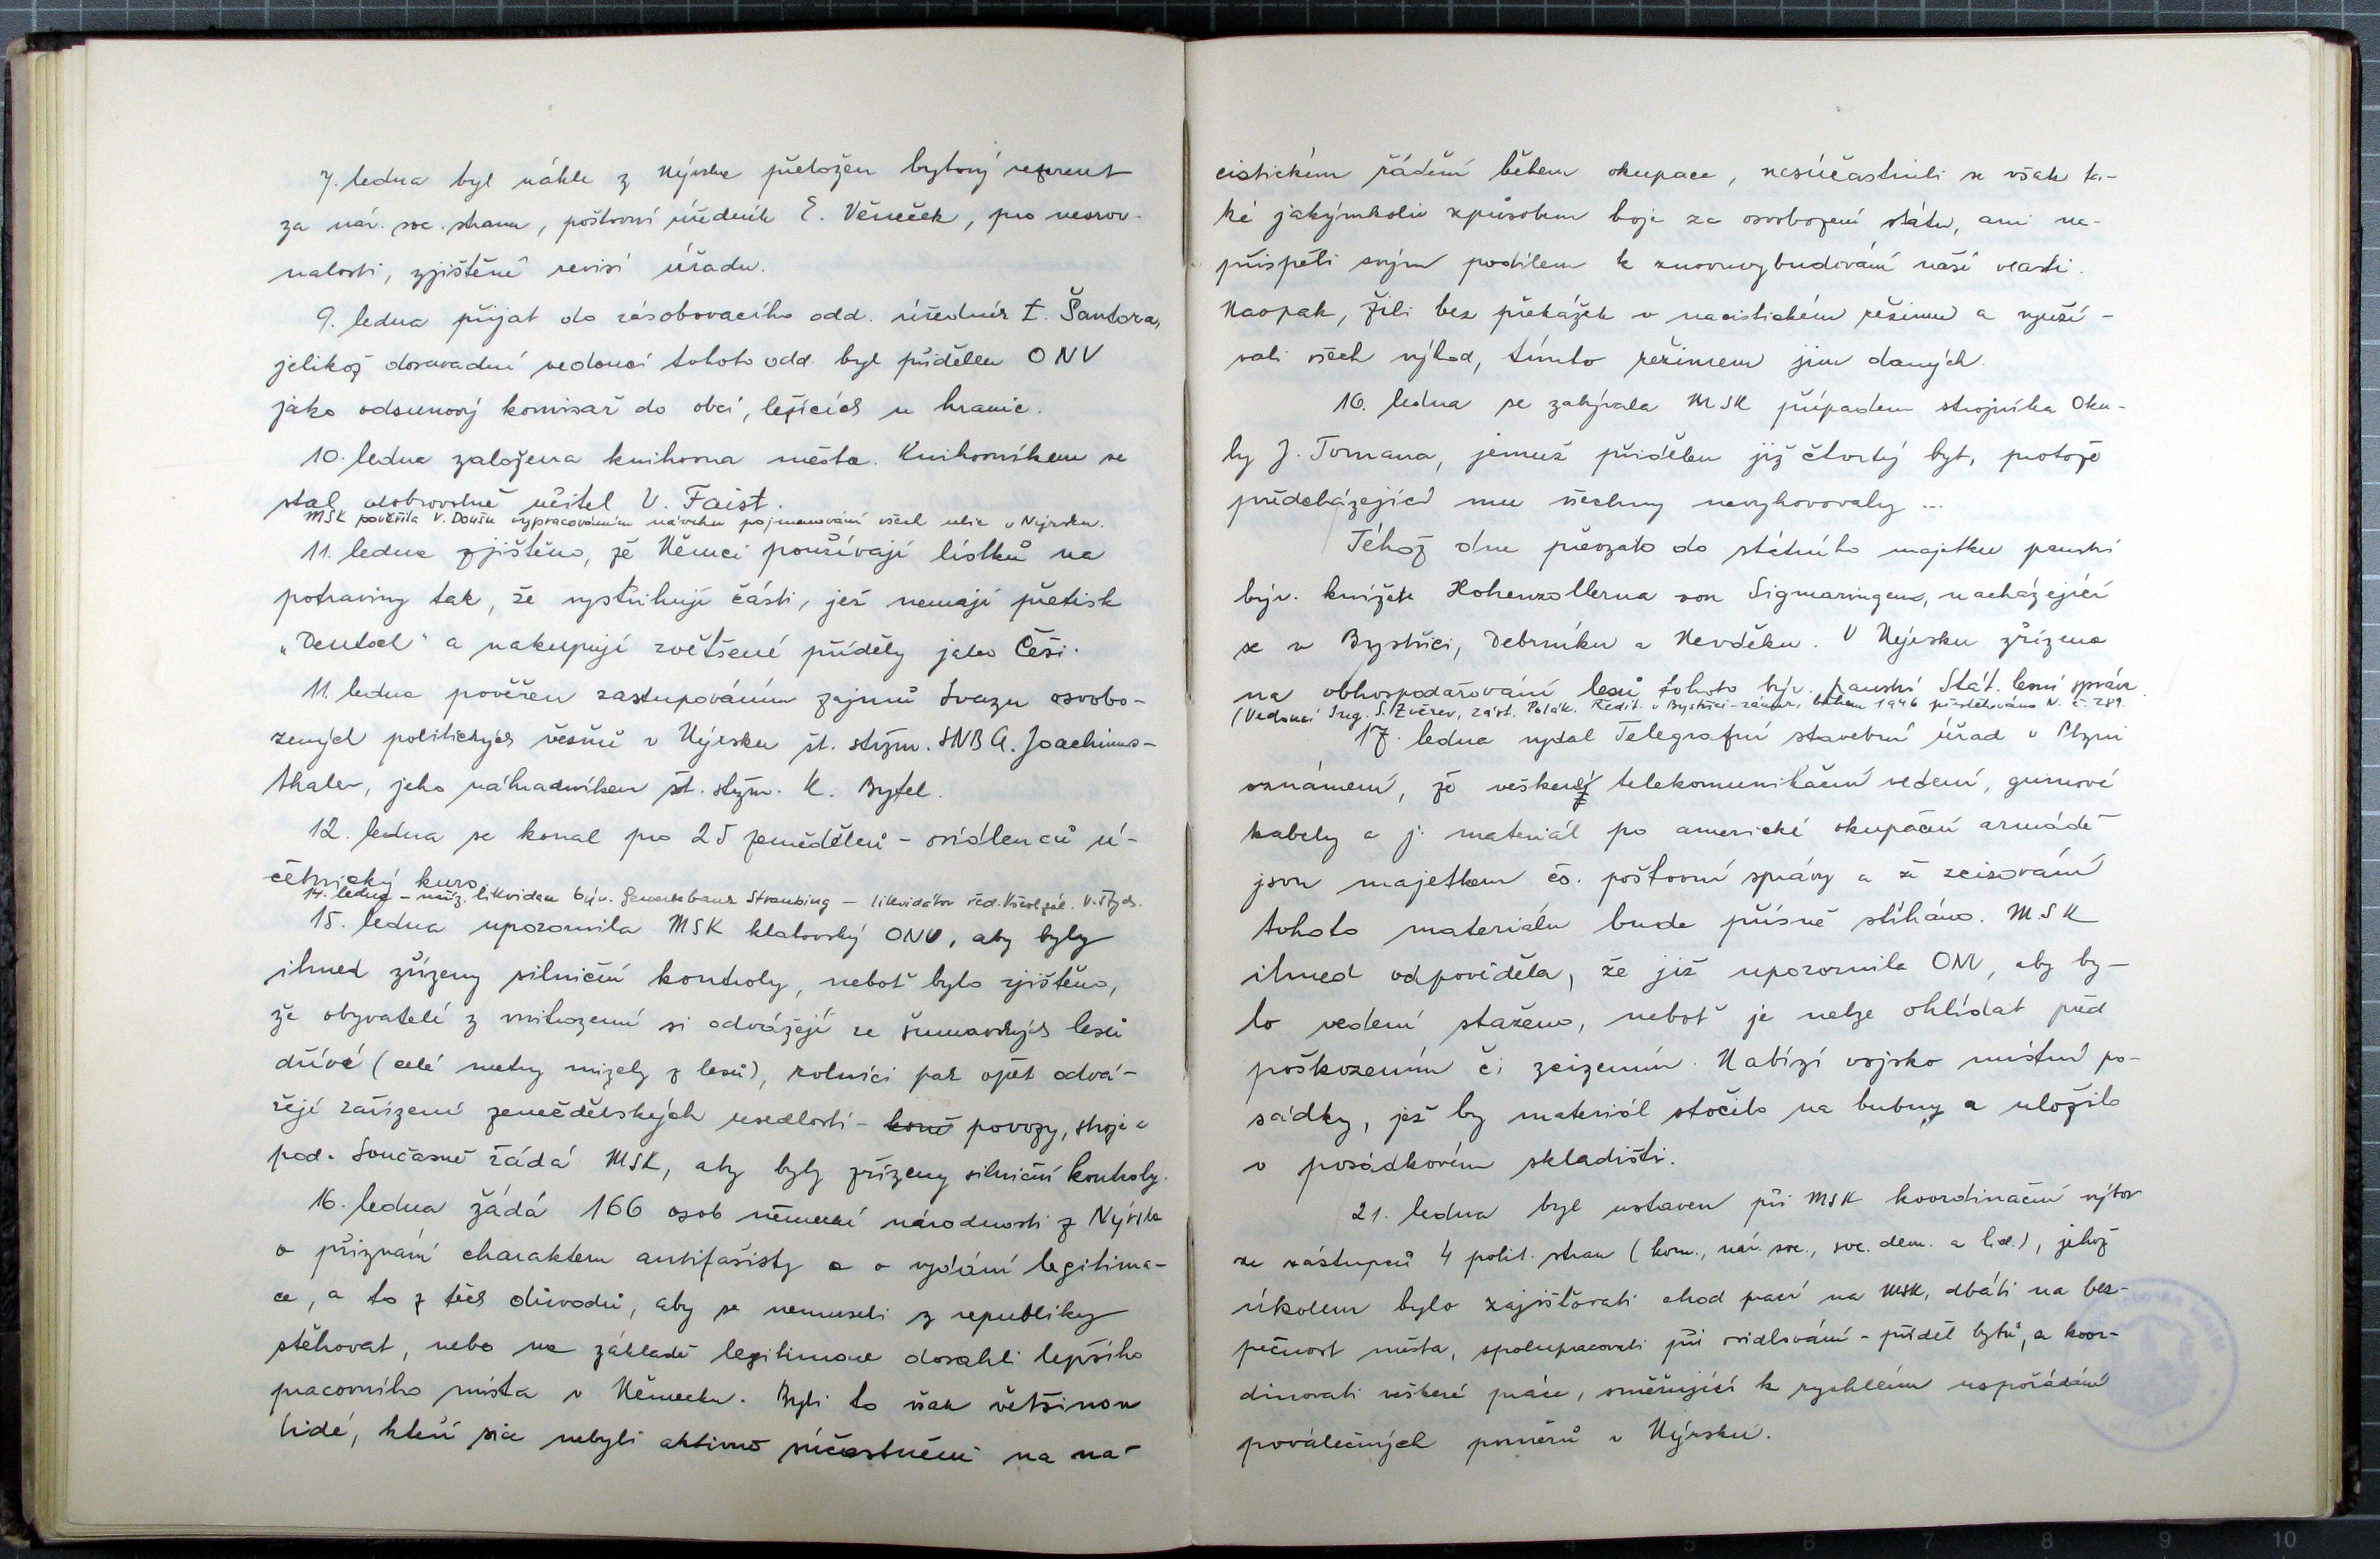 7. ledna byl náhle z Nýrska přeložen bytový referent
za nár. soc. stranu, poštovní úředník E. Věneček, pro nesrov-
nalosti, zjištěné revisí úřadu.
9. ledna přijat do zásobovacího odd. úředník I. Šantora,
jelikož dosavadní vedoucí tohoto odd. byl přidělen ONV
jako odsunový komisař do obcí, ležících u hranic.
10. ledna založena knihovna města. Knihovníkem se
stal dobrovolně učitel V. Faist.
MSK pověřila V. Doušu vypracováním návrhu pojmenování všech ulic v Nýrsku.
11. ledna zjištěno, že Němci používají lístků na
potraviny tak, že vystřihují části, jež nemají přetisk
„Deutsch" a nakupují zvětšené příděly jako Češi.
11. ledna pověřen zastupováním zájmů Svazu osvobo-
zených politických vězňů v Nýrsku št. strážm. SNB A. Joachims-
thaler, jeho náhradníkem št. strážm. K. Bytel.
12. ledna se konal pro 25 zemědělců - osídlenců ú-
četnický kurs.
14. ledna - likvidace býv. Gewerbebank Straubing - likvidátor řed.
15. ledna upozornila MSK klatovský ONV, aby byly
ihned zřízeny silniční kontroly, neboť bylo zjištěno,
že obyvatelé z vnitrozemí si odvážejí ze šumavských lesů
dříví (celé metry mizely z lesů), rolníci pak opět odvá-
žejí zařízení zemědělských usedlostí - koně povozy, stroje a
pod. Současně žádá MSK, aby byly zřízeny silniční kontroly.
16. ledna žádá 166 osob německé národnosti z Nýrska
o přiznání charakteru antifašisty a o vydání legitima-
ce, a to z těch důvodů, aby se nemuseli z republiky
stěhovat, nebo na základě legitimace dosáhli lepšího
pracovního místa v Německu. Byli to však většinou
lidé, kteří sice nebyli aktivně súčastněni na na-
cistickém řádění během okupace, nesúčastnili se však ta-
ké jakýmkoliv způsobem boje za osvobození státu, ani ne-
přispěli svým podílem k znovuvybudování naší vlasti.
Naopak, žili bez překážek v nacistickém režimu a využí-
vali všech výhod, tímto režimem jim daných.
16. ledna se zabývala MSK případem strojníka Oku-
ly J. Tomana, jemuž přidělen již čtvrtý byt, protože
předcházející mu všechny nevyhovovaly ...
Téhož dne převzato do státního majetku panství
býv. knížete Hohenzollerna von Sigmaringen, nacházející
se v Bystřici, Debrníku a Nevděku. V Nýrsku zřízena
na obhospodařování lesů tohoto býv. panství Stát. lesní správa.
(Vedoucí Ing. S. Zvěrev, zást. Polák. Ředit. v Bystřici-zámek, během 1946 přestěhováno N. č. 289.
17. ledna vydal Telegrafní stavební úřad v Plzni
oznámení, že veškerá telekomunikační vedení, gumové
kabely a j. materiál po americké okupační armádě
jsou majetkem čs. poštovní správy a že zcizování
tohoto materiálu bude přísně stíháno. MSK
ihned odpověděla, že již upozornila ONV, aby by-
lo vedení staženo, neboť je nelze ohlídat před
poškozením či zcizením. Nabízí vojsko místní po-
sádky, jež by materiál stočilo na bubny a uložilo
v posádkovém skladišti.
21. ledna byl ustaven při MSK koordinační výbor
ze zástupců 4 polit. stran (kom., nár. soc., soc. dem. a lid.), jehož
úkolem bylo zajišťovati chod prací na MSK, dbáti na bez-
pečnost města, spolupracovati při osidlování - příděl bytů, a koor-
dinovati veškeré práce, směřující k rychlému uspořádání
poválečných poměrů v Nýrsku.
7
8
9
10